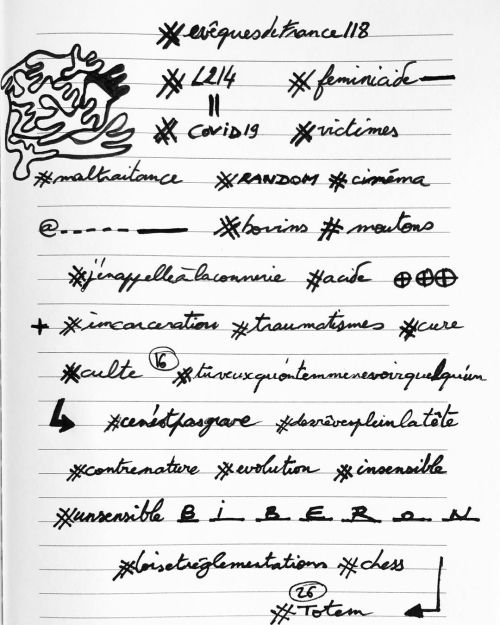 #evêquesdeFrance118
#L214 #feminicide
||
#COVID19 #victimes
#maltraitance #RANDOM #cinéma
@ #bovins #moutons
#j'enappelleàlaconnerie #acide
+ #incarceration #traumatismes #cure
#culte 16 #tuveuxquontemmenevoirquelqu'un
#cen'estpasgrave #desrêvespleinlatête
#contrenature #evolution #insensible
#unsensible B I B E R O N
#loisetréglementations #chess
26
#Totem